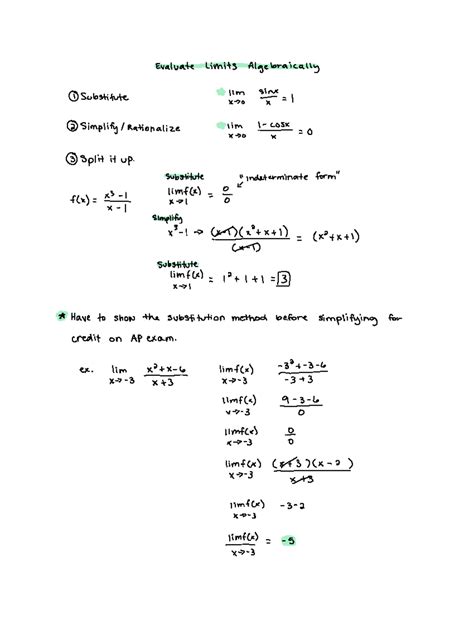 Evaluate Limits Algebraically
① Substitute lim x→0 sinx/x = 1
② Simplify/Rationalize lim x→0 1-cosx/x = 0
③ Split it up.
Substitute "indeterminate form"
f(x) = x³-1/x-1 limf(x) x→1 = 0/0
Simplify
x³-1 → (x-1)(x²+x+1)/(x-1) = (x²+x+1)
Substitute
limf(x) x→1 = 1²+1+1 = 3
* Have to show the substitution method before simplifying for
credit on AP exam.
ex. lim x→-3 x²+x-6/x+3 limf(x) x→-3 -3²+-3-6/-3+3
limf(x) x→-3 9-3-6/0
limf(x) x→-3 0/0
limf(x) x→-3 (x+3)(x-2)/x+3
limf(x) x→-3 -3-2
limf(x) x→-3 = -5